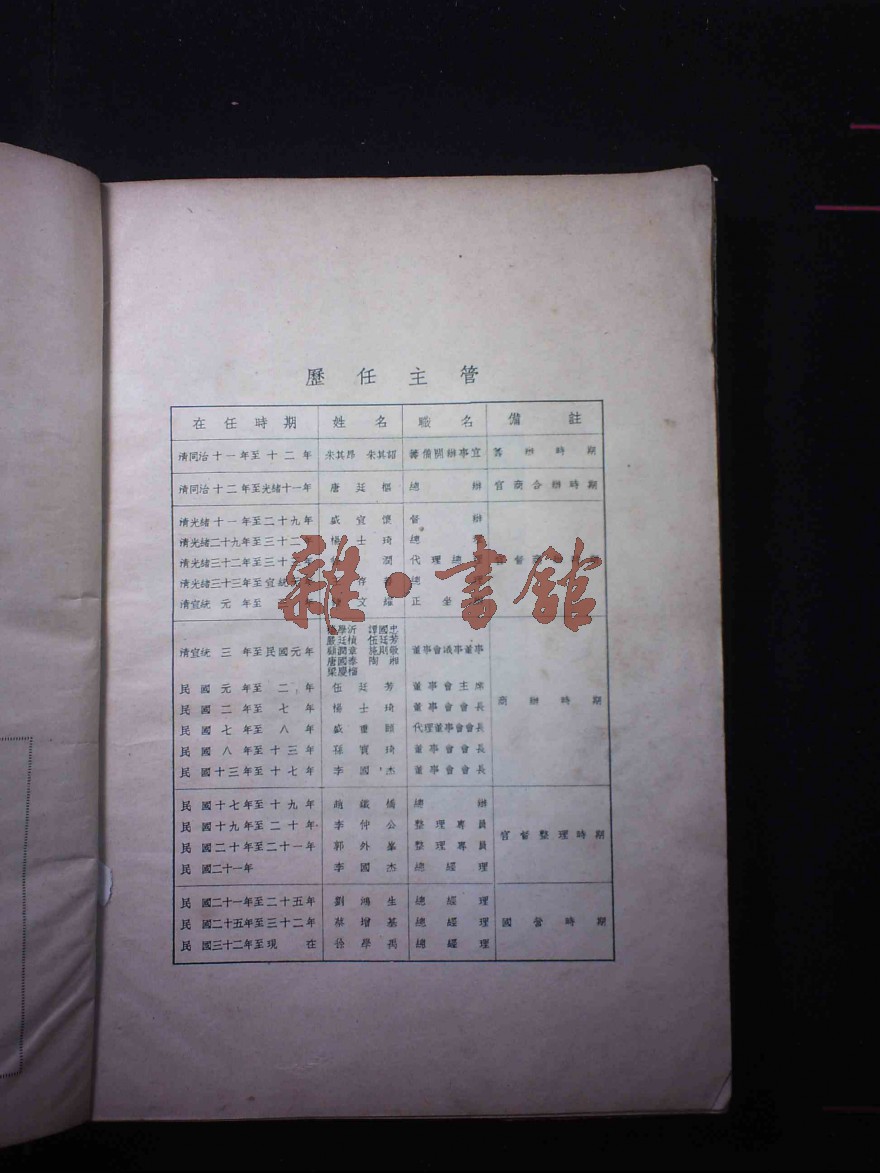 歷任主管
在任時期 姓名 職名 備註
清同治十一年至十二年 朱其昂 朱其詔 籌備開辦事宜 籌辦時期
清同治十二年至光緒十一年 唐廷樞 總辦 官商合辦時期
清光緒十一年至二十九年 盛宣懷 督辦
清光緒二十九年至三十二年 楊士琦 總
清光緒三十二年至三十三年 潤 代理總 官督商
清光緒三十三年至宣統 存 總理
清宣統元年至 年 文耀 正坐
學沂 譚國忠
嚴廷楨 伍廷芳
清宣統三年至民國元年 顧潤章 施則敬 董事會議事董事
唐國泰 陶湘
梁慶榴
民國元年至二年 伍廷芳 董事會主席
民國二年至七年 楊士琦 董事會會長 商辦時期
民國七年至八年 盛重頤 代理董事會會長
民國八年至十三年 孫寶琦 董事會會長
民國十三年至十七年 李國杰 董事會會長
民國十七年至十九年 趙鐵橋 總辦
民國十九年至二十年 李仲公 整理專員
民國二十年至二十一年 郭外峯 整理專員 官督整理時期
民國二十一年 李國杰 總經理
民國二十一年至二十五年 劉鴻生 總經理
民國二十五年至三十二年 蔡增基 總經理 國營時期
民國三十二年至現在 徐學禹 總經理
雜·書館